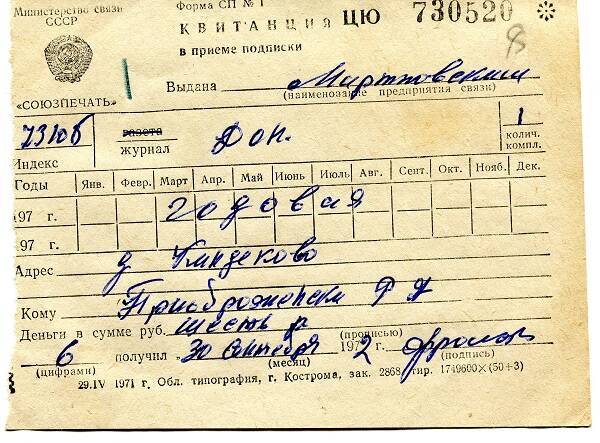 Министерство связи СССР
Форма СП № 1
КВИТАНЦИЯ ЦЮ 730520
в приеме подписки
8
Выдана
(наименование предприятия связи)
«СОЮЗПЕЧАТЬ»
73106 газета журнал Дон. 1
Индекс колич. компл.
Годы Янв. Февр. Март Апр. Май Июнь Июль Авг. Сент. Окт. Нояб. Дек.
197 г. годовая
197 г.
Адрес д
Кому
Деньги в сумме руб. шесть р (прописью)
6 получил „30 Сентября 197 2
(цифрами) (месяц) (подпись)
29.IV 1971 г. Обл. типография, г. Кострома, зак. 2868, тир. 1749600×(50+3)